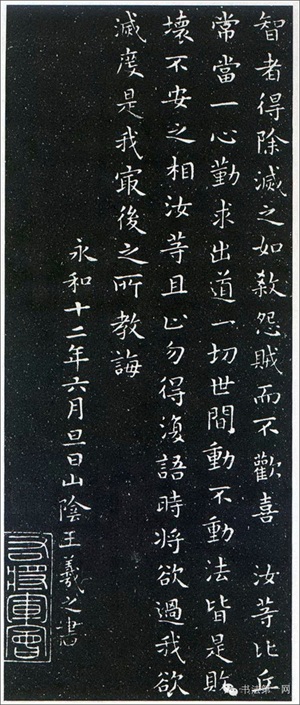 智者得除滅之如殺怨賊而不歡喜　汝等比丘
常當一心勤求出道一切世間動不動法皆是敗
壞不安之相汝等且止勿得復語時将欲過我欲
滅度是我㝡後之所教誨
永和十二年六月旦日山陰王羲之書
右将軍會
书法第一网